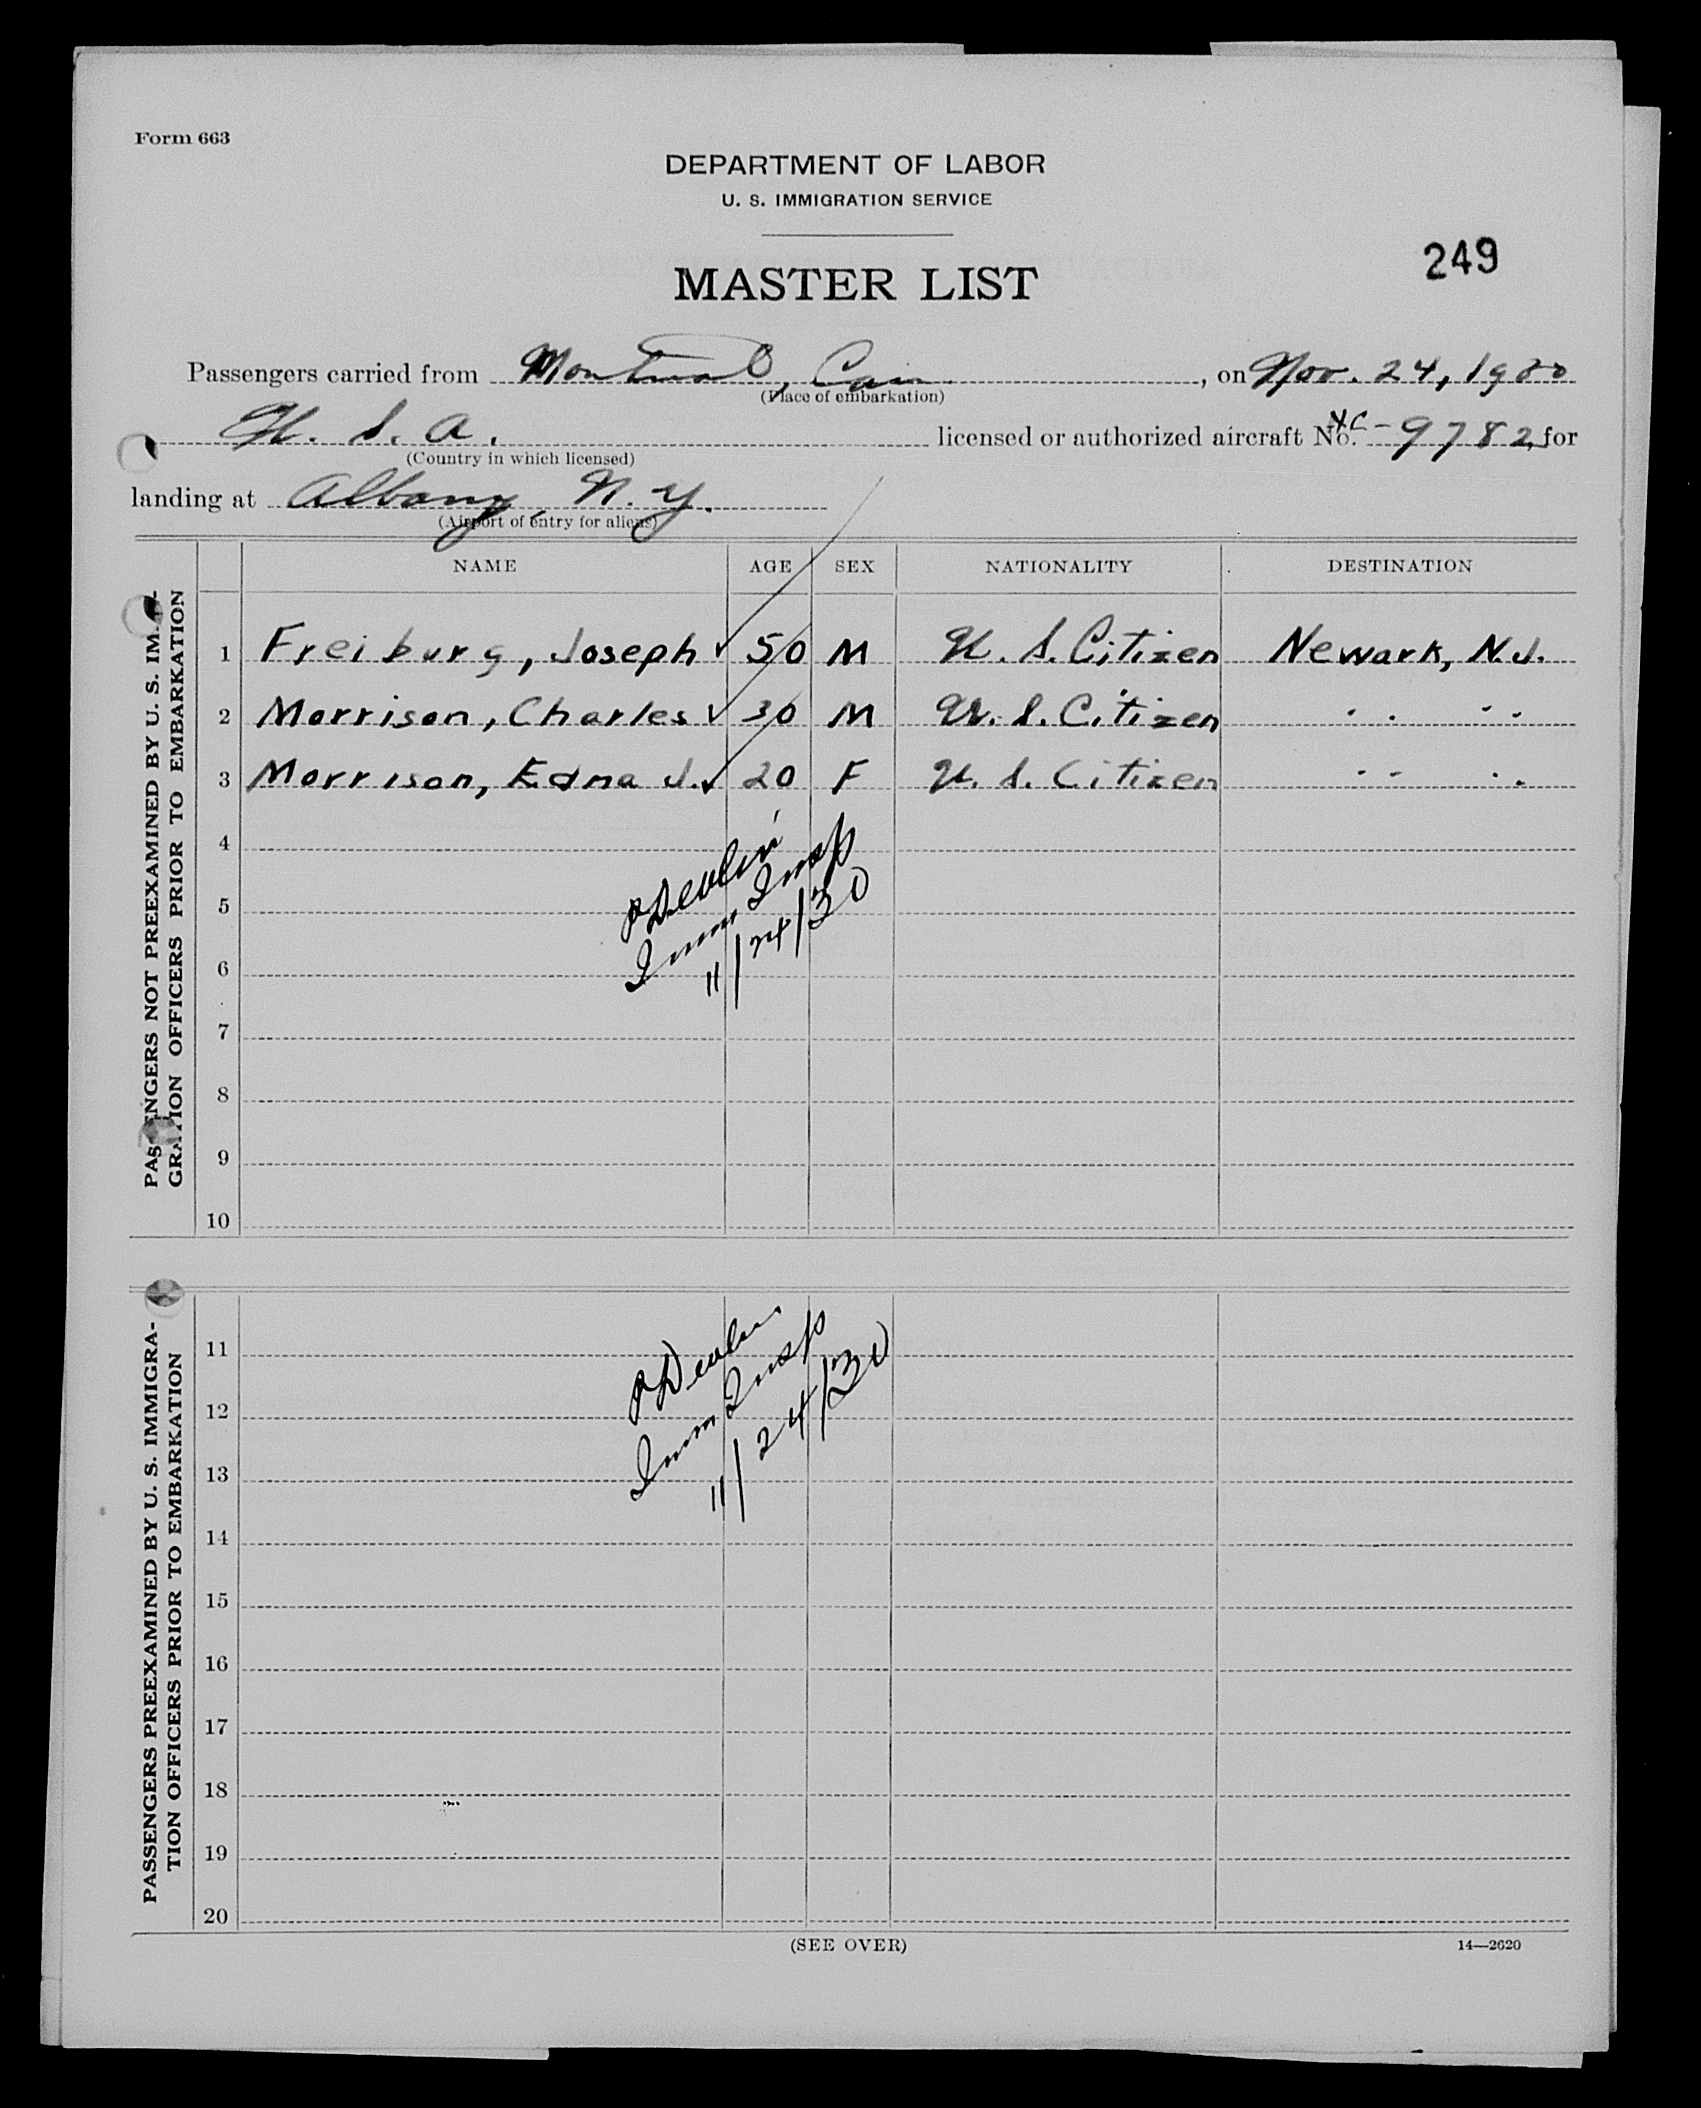 Form 663
DEPARTMENT OF LABOR
U. S. IMMIGRATION SERVICE
MASTER LIST
249
Passengers carried from Montreal, Can. , on Nov. 24, 1930
(Place of embarkation)
U. S. A. licensed or authorized aircraft No. NC-9782, for
(Country in which licensed)
landing at Albany, N. Y.
(Airport of entry for aliens)
NAME AGE SEX NATIONALITY DESTINATION
PASSENGERS NOT PREEXAMINED BY U. S. IMMI-
GRATION OFFICERS PRIOR TO EMBARKATION
1 Freiburg, Joseph ✓ 50 M U. S. Citizen Newark, N.J.
2 Morrison, Charles ✓ 30 M U. S. Citizen " "
3 Morrison, Edna J. ✓ 20 F U. S. Citizen " "
4
5
6
7
8
9
10
Devlin
Imm Insp
11/24/30
PASSENGERS PREEXAMINED BY U. S. IMMIGRA-
TION OFFICERS PRIOR TO EMBARKATION
11
12
13
14
15
16
17
18
19
20
Devlin
Imm Insp
11/24/30
(SEE OVER)
14—2620